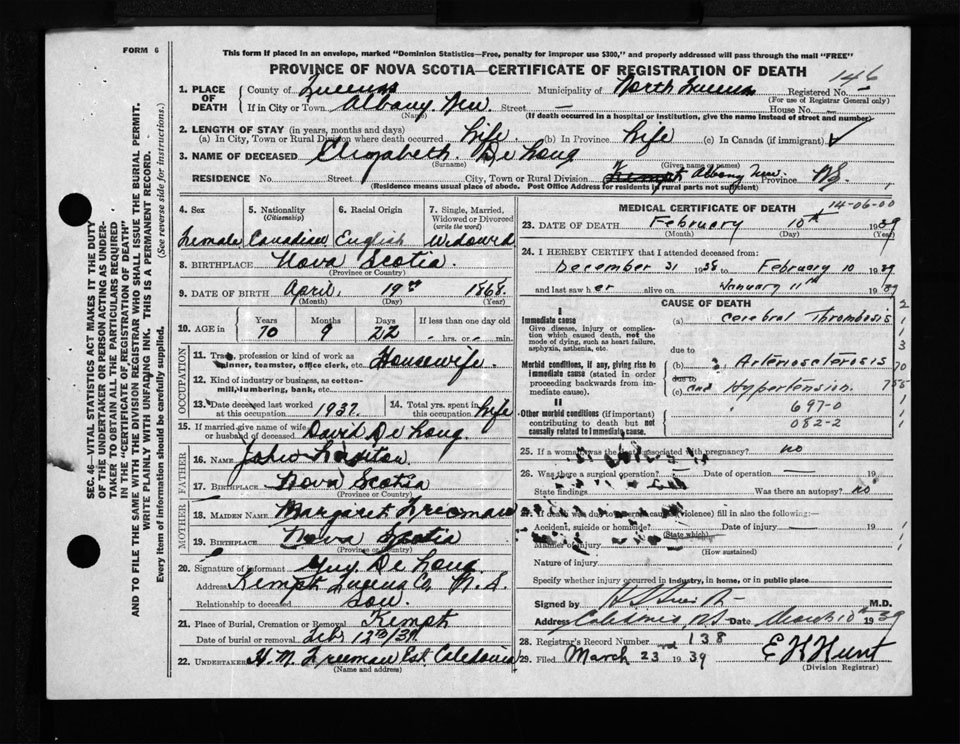 FORM 6
This form if placed in an envelope, marked "Dominion Statistics—Free, penalty for improper use $300," and properly addressed will pass through the mail "FREE"
PROVINCE OF NOVA SCOTIA—CERTIFICATE OF REGISTRATION OF DEATH
146
1. PLACE OF DEATH
County of Queens Municipality of North Queens Registered No.
(For use of Registrar General only)
If in City or Town Albany New Street — House No. —
(Name) (If death occurred in a hospital or institution, give the name instead of street and number)
2. LENGTH OF STAY (in years, months and days)
(a) In City, Town or Rural Division where death occurred Life (b) In Province Life (c) In Canada (if immigrant) ✓
3. NAME OF DECEASED Elizabeth De Long
(Surname) (Given name or names)
RESIDENCE No. Street City, Town or Rural Division Kempt Albany New Province N.S.
(Residence means usual place of abode. Post Office Address for residents in rural parts not sufficient)
4. Sex 5. Nationality (Citizenship) 6. Racial Origin 7. Single, Married, Widowed or Divorced (write the word)
Female Canadian English Widowed
8. BIRTHPLACE Nova Scotia.
(Province or Country)
9. DATE OF BIRTH April, 19th 1868.
(Month) (Day) (Year)
10. AGE in Years Months Days If less than one day old
70 9 22 hrs. or min.
OCCUPATION
11. Trade, profession or kind of work as spinner, teamster, office clerk, etc. Housewife.
12. Kind of industry or business, as cotton-mill, lumbering, bank, etc.
13. Date deceased last worked at this occupation 1937. 14. Total yrs. spent in this occupation Life
15. If married give name of wife or husband of deceased David De Long.
FATHER
16. Name John
17. Birthplace Nova Scotia
(Province or Country)
MOTHER
18. MAIDEN NAME Margaret Freeman
19. BIRTHPLACE Nova Scotia
(Province or Country)
20. Signature of informant Guy De Long
Address Kempt Queens Co, N.S.
Relationship to deceased Son.
21. Place of Burial, Cremation or Removal Kempt
Date of burial or removal Feb 12th/39.
22. UNDERTAKER H.M. Freeman Est. Caledonia
(Name and address)
MEDICAL CERTIFICATE OF DEATH
14-06-00
23. DATE OF DEATH February 10th 1939
(Month) (Day) (Year)
24. I HEREBY CERTIFY that I attended deceased from:
December 31 1938 to February 10 1939
and last saw her alive on January 11th 1939
CAUSE OF DEATH
I
Immediate cause
Give disease, injury or complication which caused death, not the mode of dying, such as heart failure, asphyxia, asthenia, etc.
(a) Cerebral Thrombosis
due to
Morbid conditions, if any, giving rise to immediate cause (stated in order proceeding backwards from immediate cause).
(b) Arteriosclerosis
due to
(c) and Hypertension.
II
Other morbid conditions (if important) contributing to death but not causally related to immediate cause.
697-0
082-2
25. If a woman, was the death associated with pregnancy? no
26. Was there a surgical operation? Date of operation — 19
State findings Was there an autopsy? no
fill in also the following:—
Accident, suicide or homicide? Date of injury — 19
(State which)
Manner of injury
(How sustained)
Nature of injury
Specify whether injury occurred in industry, in home, or in public place
Signed by M.D.
Address Caledonia, N.S. Date March 10th 1939
28. Registrar's Record Number 138
29. Filed March 23rd 1939 E H Hunt
(Division Registrar)
SEC. 46—VITAL STATISTICS ACT MAKES IT THE DUTY
OF THE UNDERTAKER OR PERSON ACTING AS UNDER-
TAKER TO OBTAIN ALL THE PARTICULARS REQUIRED
IN THE "CERTIFICATE OF REGISTRATION OF DEATH"
AND TO FILE THE SAME WITH THE DIVISION REGISTRAR WHO SHALL ISSUE THE BURIAL PERMIT.
WRITE PLAINLY WITH UNFADING INK. THIS IS A PERMANENT RECORD.
Every item of information should be carefully supplied. (See reverse side for instructions.)